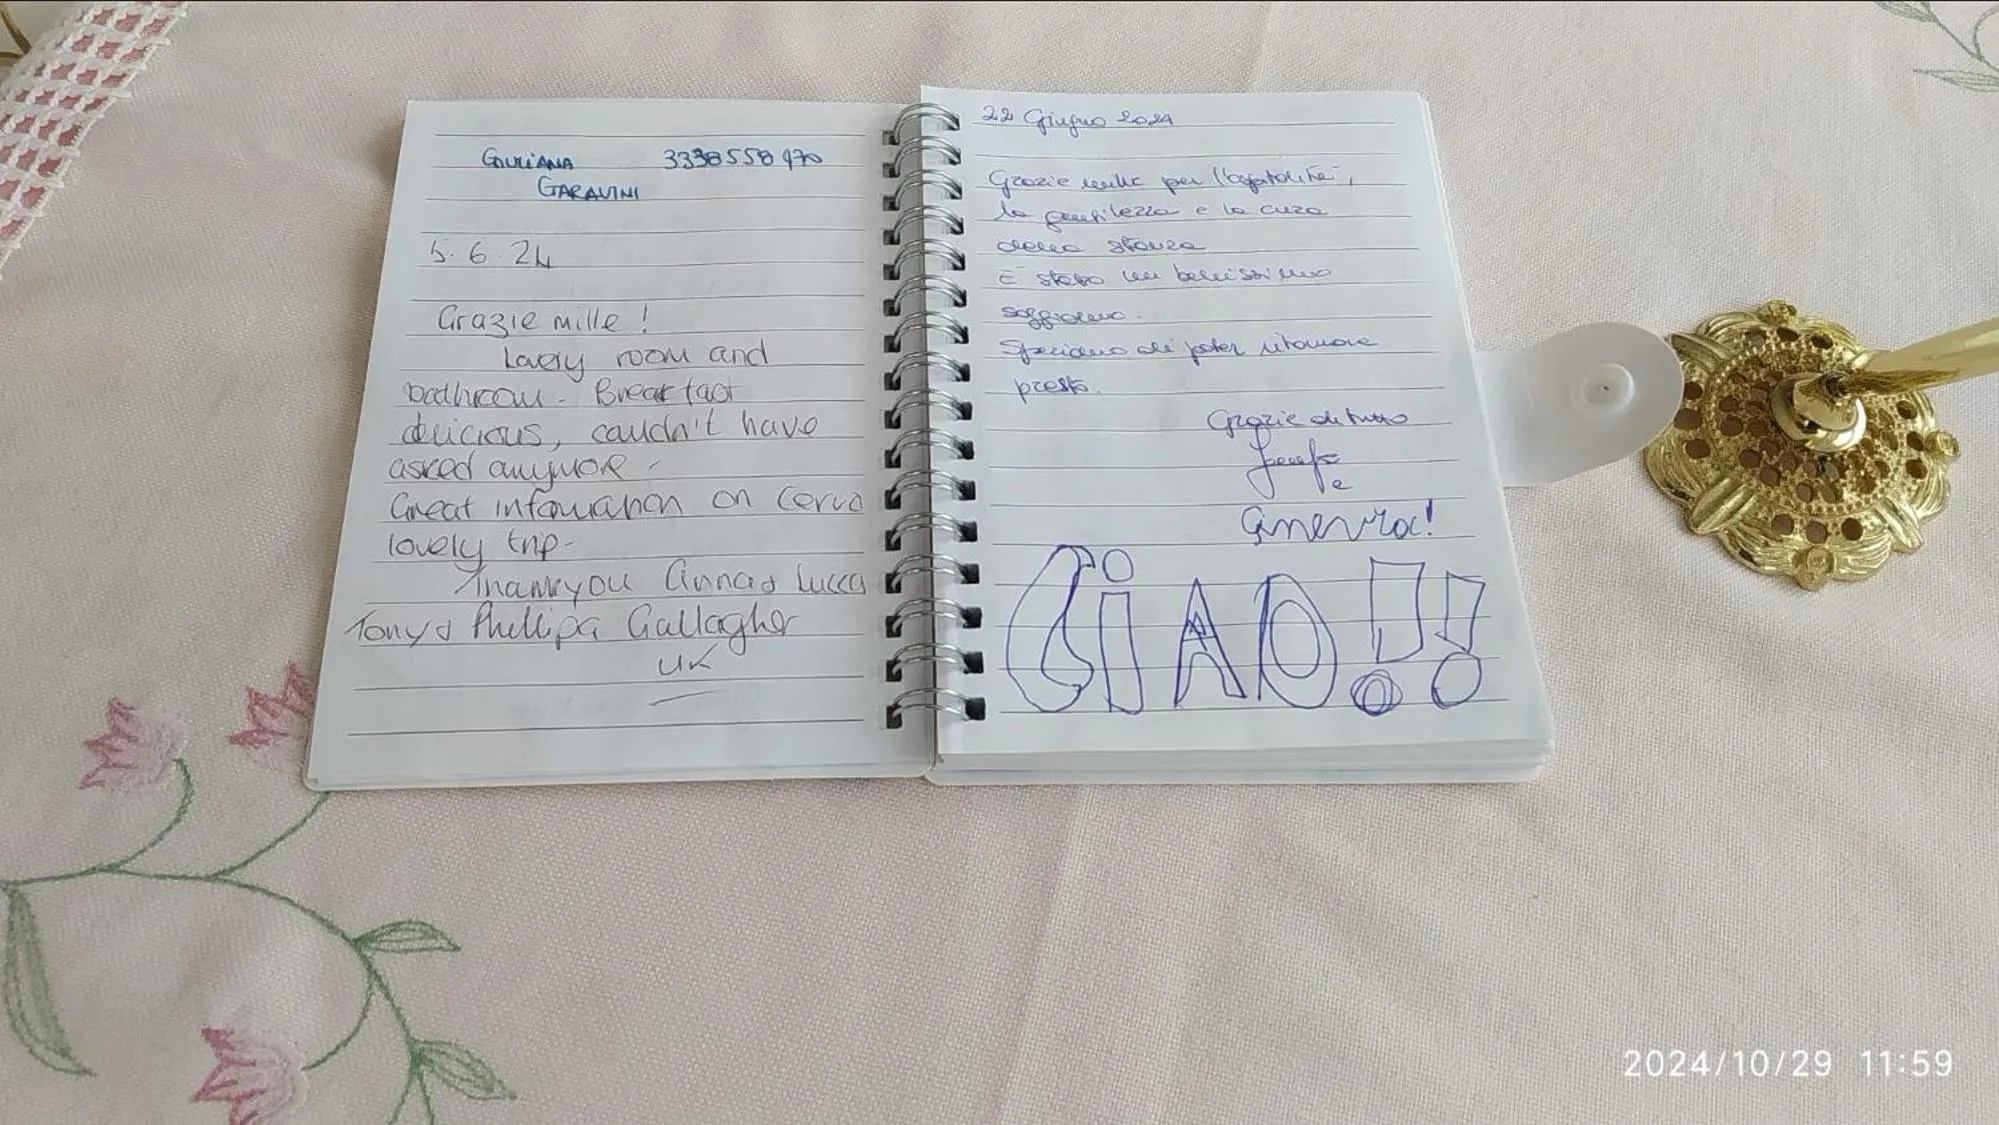 GIULIANA 3338558970
GARAVINI
5.6.24
Grazie mille!
Lovely room and
bathroom. Breakfast
delicious, couldn't have
asked anymore.
Great information on Cervo
lovely trip.
Thankyou Anna & Lucca
Tony & Phillipa Gallagher
UK
22 Giugno 2024
Grazie mille per l'ospitalità,
la gentilezza e la cura
della stanza
È stato un bellissimo
soggiorno.
Speriamo di poter ritornare
presto.
Grazie di tutto
e
Ginevra!
CiAO!!
2024/10/29 11:59